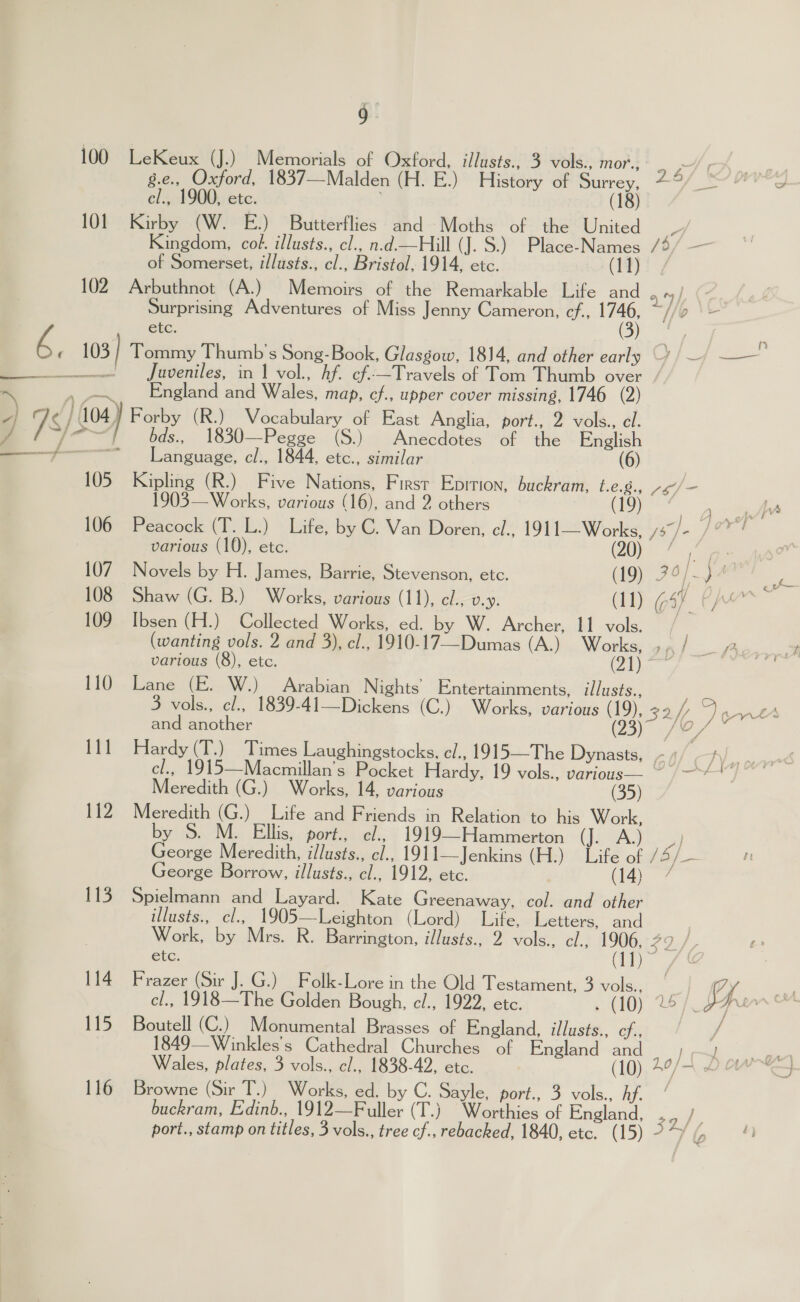 9
100 LeKeux (J.) Memorials of Oxford, illusts., 3 vols., mor.,
g.e., Oxford, 1837—Malden (H. E.) History of Surrey,
cl., 1900, etc. (18)
101 Kirby (W. E.) Butterflies and Moths of the United
Kingdom, col. illusts., cl., n.d.—Hill (J. S.) Place-Names
of Somerset, illusts., cl., Bristol, 1914, etc. (11)
102 Arbuthnot (A.) Memoirs of the Remarkable Life and
Surprising Adventures of Miss Jenny Cameron, cf., 1746,
etc. (3)
103 Tommy Thumb's Song-Book, Glasgow, 1814, and other early
Juveniles, in 1 vol., hf. cf.—Travels of Tom Thumb over
England and Wales, map, cf., upper cover missing, 1746 (2)
104 Forby (R.) Vocabulary of East Anglia, port., 2 vols., cl.
bds., 1830—Pegge (S.) Anecdotes of the English
Language, cl., 1844, etc., similar (6)
105 Kipling (R.) Five Nations, First Edition, buckram, t.e.g.,
1903—Works, various (16), and 2 others (19)
106 Peacock (T. L.) Life, by C. Van Doren, cl., 1911—Works,
various (10), etc. (20)
107 Novels by H. James, Barrie, Stevenson, etc. (19) 30/-
108 Shaw (G. B.) Works, various (11), cl., v.y. (11)
109 Ibsen (H.) Collected Works, ed. by W. Archer, 11 vols.
(wanting vols. 2 and 3), cl., 1910-17—Dumas (A.) Works,
various (8), etc. (21)
110 Lane (E. W.) Arabian Nights' Entertainments, illusts.,
3 vols., cl., 1839-41—Dickens (C.) Works, various (19),
and another (23)
111 Hardy (T.) Times Laughingstocks, cl., 1915—The Dynasts,
cl., 1915—Macmillan's Pocket Hardy, 19 vols., various—
Meredith (G.) Works, 14, various (35)
112 Meredith (G.) Life and Friends in Relation to his Work,
by S. M. Ellis, port., cl., 1919—Hammerton (J. A.)
George Meredith, illusts., cl., 1911—Jenkins (H.) Life of
George Borrow, illusts., cl., 1912, etc. (14)
113 Spielmann and Layard. Kate Greenaway, col. and other
illusts., cl., 1905—Leighton (Lord) Life, Letters, and
Work, by Mrs. R. Barrington, illusts., 2 vols., cl., 1906,
etc. (11)
114 Frazer (Sir J. G.) Folk-Lore in the Old Testament, 3 vols.,
cl., 1918—The Golden Bough, cl., 1922, etc. (10)
115 Boutell (C.) Monumental Brasses of England, illusts., cf.,
1849—Winkles's Cathedral Churches of England and
Wales, plates, 3 vols., cl., 1838-42, etc. (10) 20/-
116 Browne (Sir T.) Works, ed. by C. Sayle, port., 3 vols., hf.
buckram, Edinb., 1912—Fuller (T.) Worthies of England,
port., stamp on titles, 3 vols., tree cf., rebacked, 1840, etc. (15)